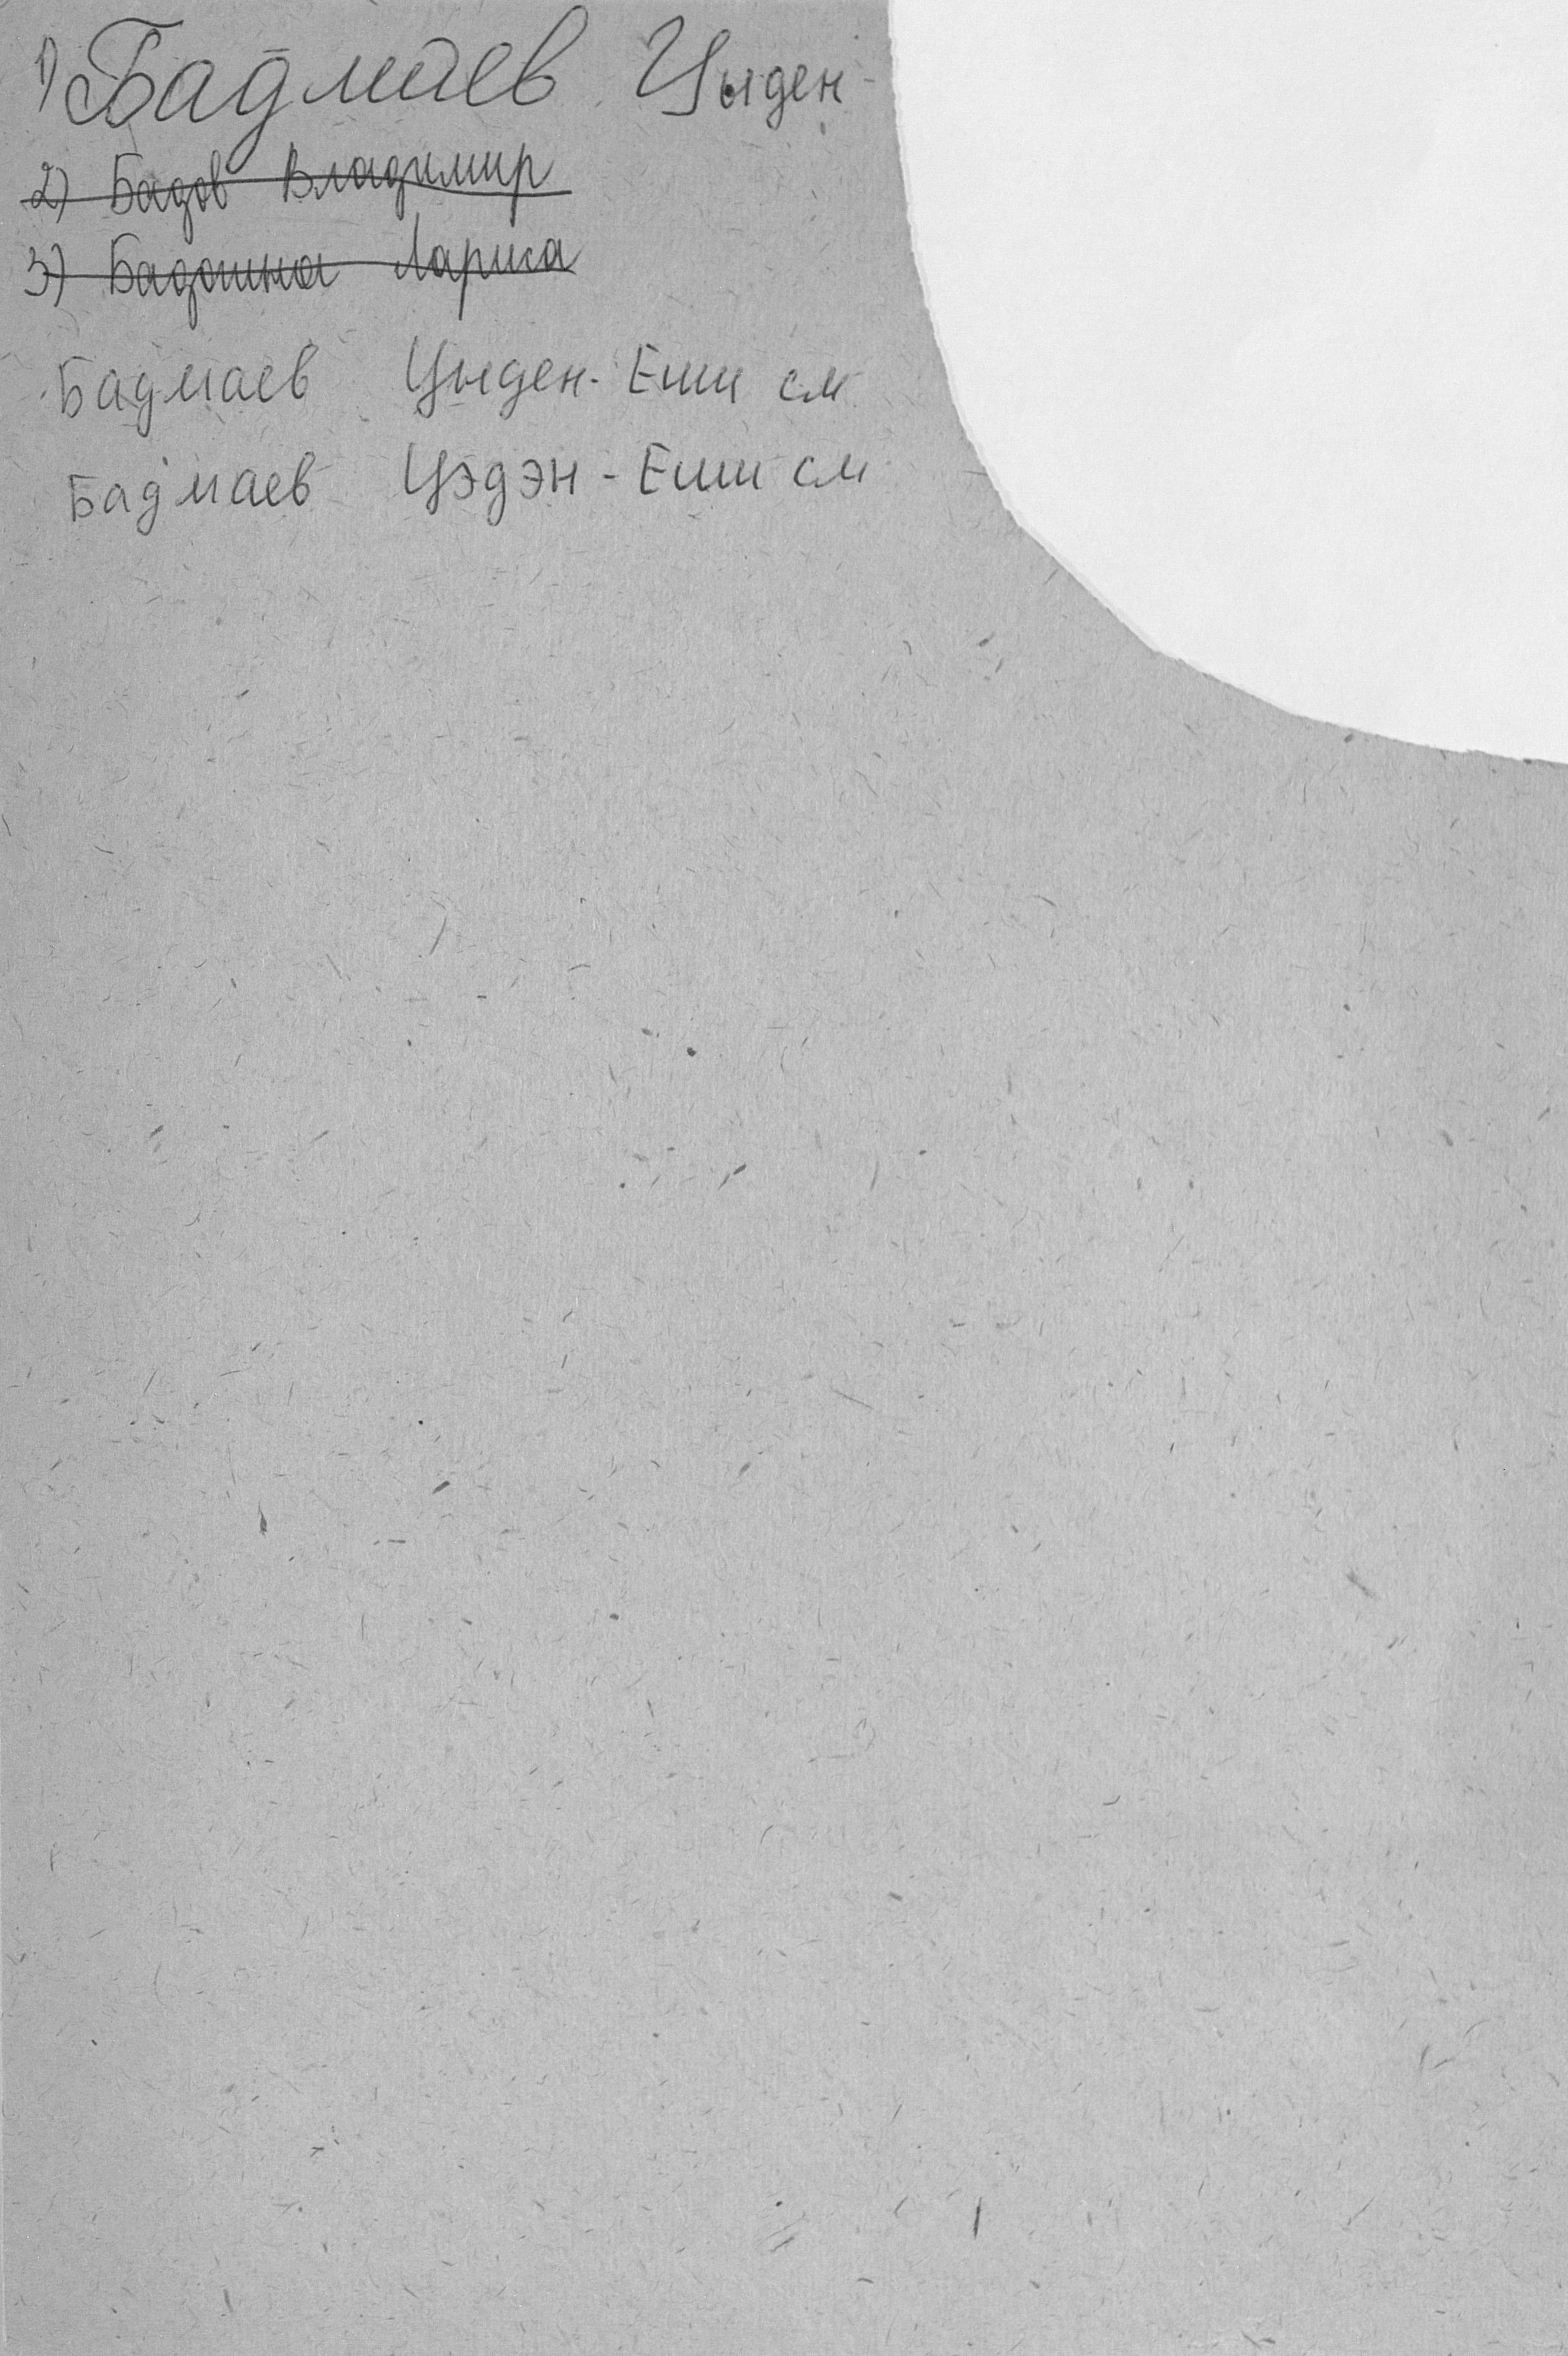 1) Бадмаев Цыден-
2) Бадов Владимир
3) Бадошна Лариса
Бадмаев Цыден-Еши см
Бадмаев Цэдэн-Еши см